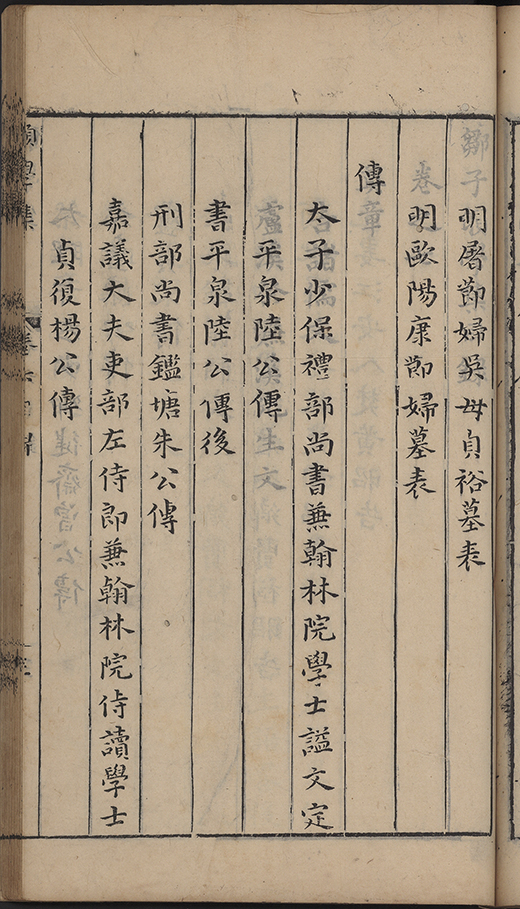 明屠節婦吳母貞裕墓表
明歐陽康節婦墓表
傳
太子少保禮部尚書蒹翰林院學士謚文定
平泉陸公傳
書平泉陸公傳後
刑部尚書鑑塘朱公傳
嘉議大夫吏部左侍郎蒹翰林院侍讀學士
貞復楊公傳
學集